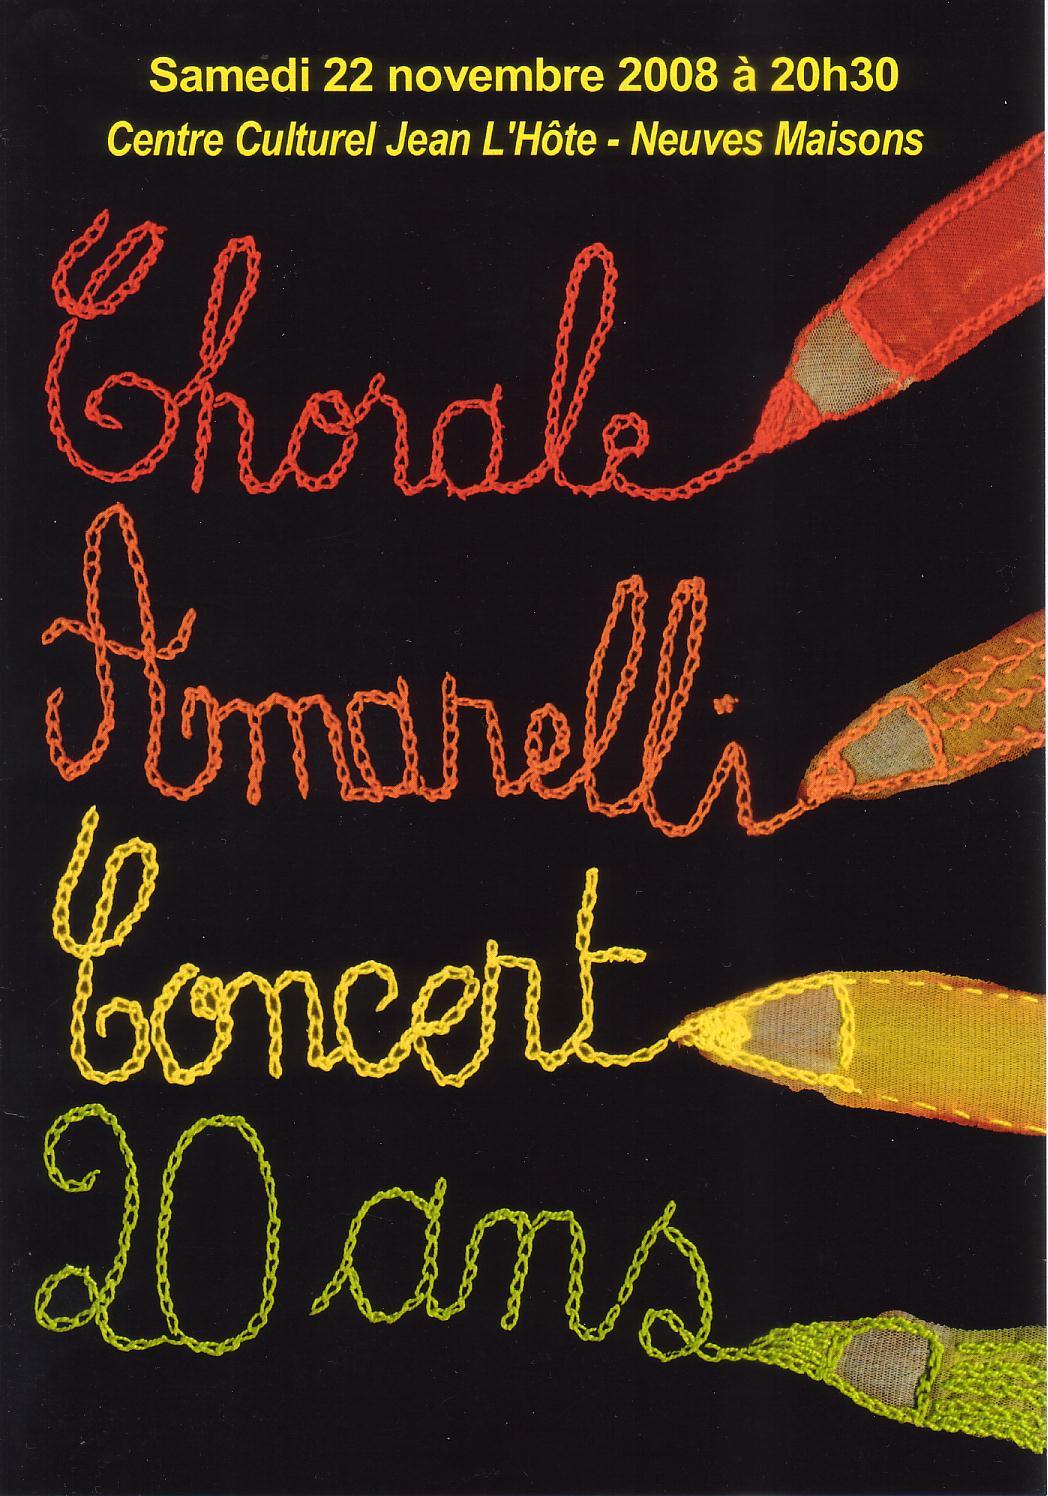 Samedi 22 novembre 2008 à 20h30
Centre Culturel Jean L'Hôte - Neuves Maisons
Chorale
Amarelli
Concert
20 ans